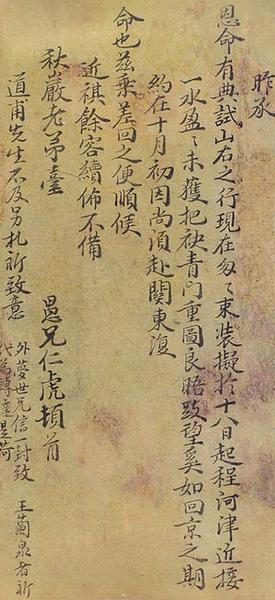 昨承
恩命有典試山右之行現在匆匆束裝擬於十八日起程河津近接
一水盈盈未獲把袂青門重圖良晤跂望奚如回京之期
約在十月初因尚須赴関東復
命也茲乗差回之便順候
近祺餘容續佈不備
秋巖老弟臺
愚兄仁虎頓首
道甫先生不及另札祈致意
外夢世兄信一封致
王蘭泉者祈
代為轉達是荷